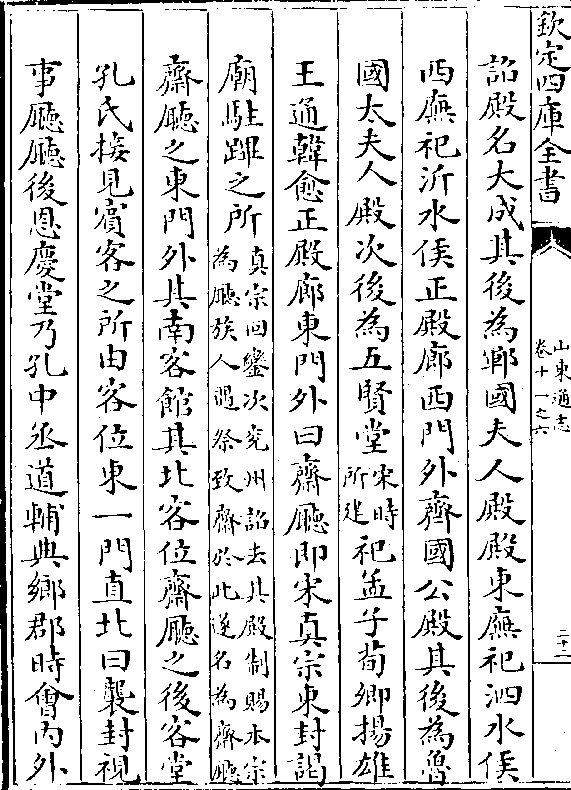 欽定四庫全書
山東通志
卷十一之六
二十二
詔殿名大成其後為鄆國夫人殿殿東廡祀泗水侯
西廡祀沂水侯正殿廊西門外齊國公殿其後為魯
國太夫人殿次後為五賢堂宋時所建祀孟子荀卿揚雄
王通韓愈正殿廊東門外曰齋廳即宋真宗東封謁
廟駐蹕之所真宗回鑾次兖州詔去其殿制賜本宗為廳族人遇祭致齋於此遂名為齋廳
齋廳之東門外其南客館其北客位齋廳之後客堂
孔氏接見賓客之所由客位東一門直北曰襲封視
事廳廳後恩慶堂乃孔中丞道輔典鄉郡時會内外